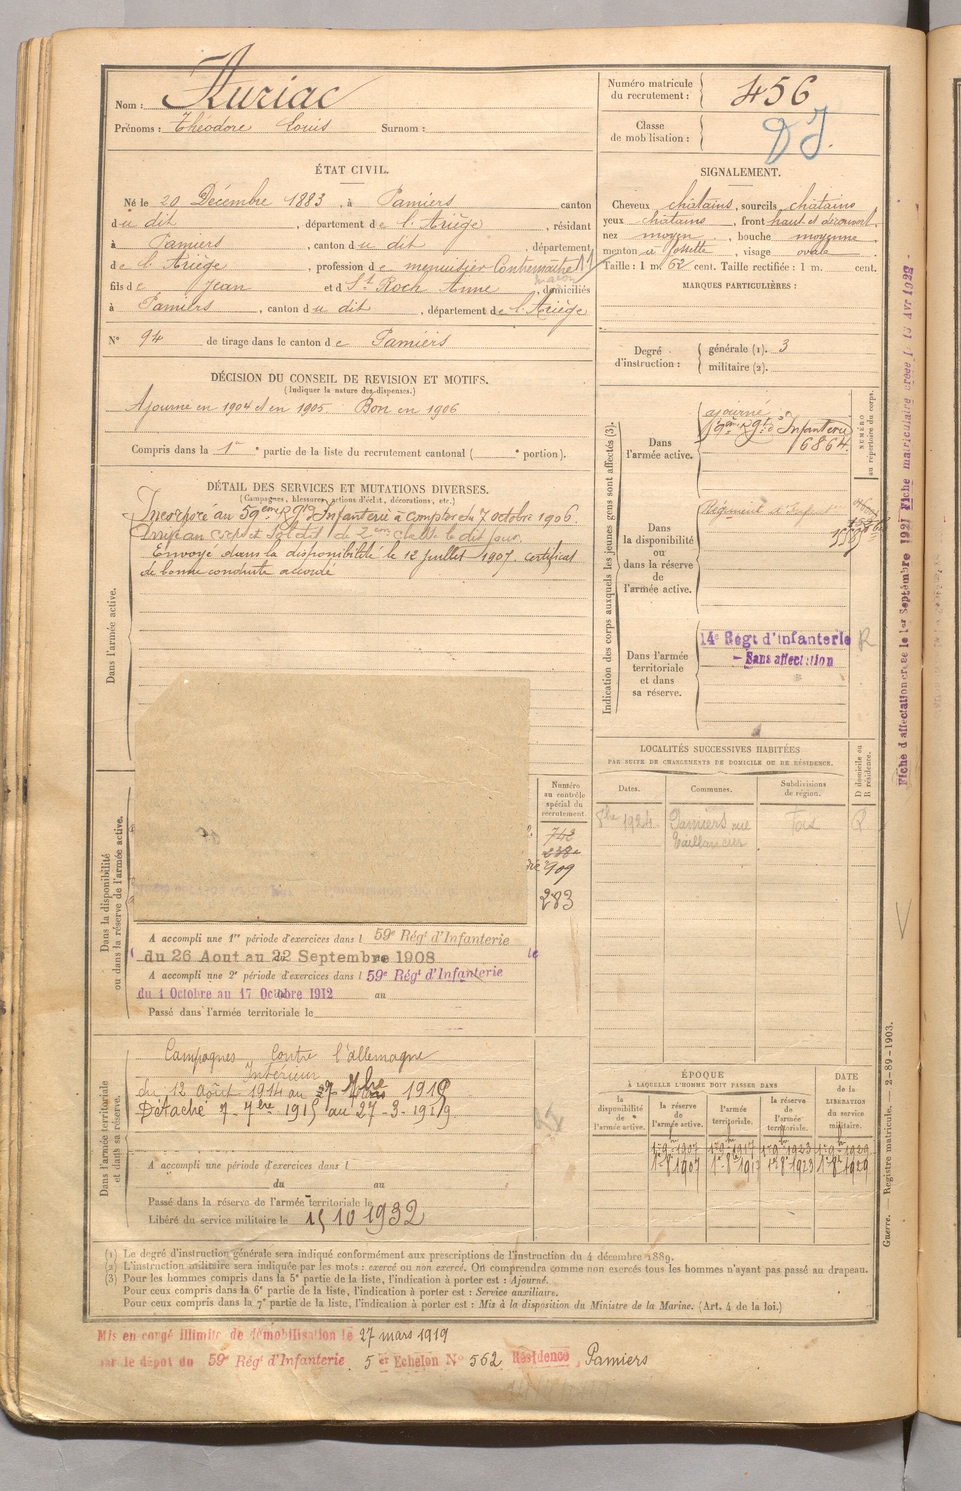 Nom : Auriac
Prénoms : Théodore Louis Surnom :
Numéro matricule du recrutement : 456
Classe de mobilisation :
ÉTAT CIVIL.
Né le 20 Décembre 1883, à Pamiers canton
du dit, département de l'Ariège, résidant
à Pamiers, canton du dit, département
de l'Ariège, profession de menuisier Contremaître
fils de Jean et d St Roch Anne, domiciliés
à Pamiers, canton du dit, département de l'Ariège
N° 94 de tirage dans le canton de Pamiers
SIGNALEMENT.
Cheveux châtains, sourcils châtains
yeux châtains, front haut et découvert,
nez moyen, bouche moyenne
menton à fossette, visage ovale
Taille : 1 m. 62 cent. Taille rectifiée : 1 m. cent.
MARQUES PARTICULIÈRES :
Degré d'instruction : générale (1). 3
militaire (2).
DÉCISION DU CONSEIL DE REVISION ET MOTIFS.
(Indiquer la nature des dispenses.)
Ajourné en 1904 et en 1905. Bon en 1906
Compris dans la 1re partie de la liste du recrutement cantonal ( e portion).
DÉTAIL DES SERVICES ET MUTATIONS DIVERSES.
(Campagnes, blessures, actions d'éclat, décorations, etc.)
Dans l'armée active.
Incorporé au 59ème Rgt d'Infanterie à compter du 7 octobre 1906.
soldat de 2ème classe le dit jour.
Envoyé dans la disponibilité le 12 juillet 1907. certificat
de bonne conduite accordé
Indication des corps auxquels les jeunes gens sont affectés (3).
NUMÉRO au répertoire du corps.
Dans l'armée active.
ajourné
59ème Rgt d'Infanterie
6864
Dans la disponibilité ou dans la réserve de l'armée active.
Régiment d'Infanterie
Dans l'armée territoriale et dans sa réserve.
14e Régt d'infanterie R
Sans affectation
LOCALITÉS SUCCESSIVES HABITÉES
PAR SUITE DE CHANGEMENTS DE DOMICILE OU DE RÉSIDENCE.
D domicile ou R résidence.
Dates. Communes. Subdivisions de région.
1924 Pamiers rue Foix R
Dans la disponibilité ou dans la réserve de l'armée active.
Numéro au contrôle spécial du recrutement.
742
909
283
A accompli une 1re période d'exercices dans l 59e Régt d'Infanterie
du 26 Aout au 22 Septembre 1908
A accompli une 2e période d'exercices dans l 59e Régt d'Infanterie
du 1 Octobre au 17 Octobre 1912 au
Passé dans l'armée territoriale le
Dans l'armée territoriale et dans sa réserve.
Campagnes Contre l'allemagne
Intérieur
du 12 août 1914 au 1915
Détaché 7-7bre 1915 au 27-3-1919
A accompli une période d'exercices dans l
du au
Passé dans la réserve de l'armée territoriale le
Libéré du service militaire le 15 10 1932
ÉPOQUE
À LAQUELLE L'HOMME DOIT PASSER DANS
DATE de la LIBÉRATION du service militaire.
la disponibilité de l'armée active. la réserve de l'armée active. l'armée territoriale. la réserve de l'armée territoriale.
(1) Le degré d'instruction générale sera indiqué conformément aux prescriptions de l'instruction du 4 décembre 1889.
(2) L'instruction militaire sera indiquée par les mots : exercé ou non exercé. On comprendra comme non exercés tous les hommes n'ayant pas passé au drapeau.
(3) Pour les hommes compris dans la 5e partie de la liste, l'indication à porter est : Ajourné.
Pour ceux compris dans la 6e partie de la liste, l'indication à porter est : Service auxiliaire.
Pour ceux compris dans la 7e partie de la liste, l'indication à porter est : Mis à la disposition du Ministre de la Marine. (Art. 4 de la loi.)
Mis en congé illimité de démobilisation le 27 mars 1919
par le dépot du 59e Régt d'Infanterie 5 er Echelon N° 562 Résidence, Pamiers
Guerre. — Registre matricule. — 2-89-1903.
Fiche d'affectation créée le 1er Septembre 1921 Fiche matriculaire créée l 15 Avr 1922